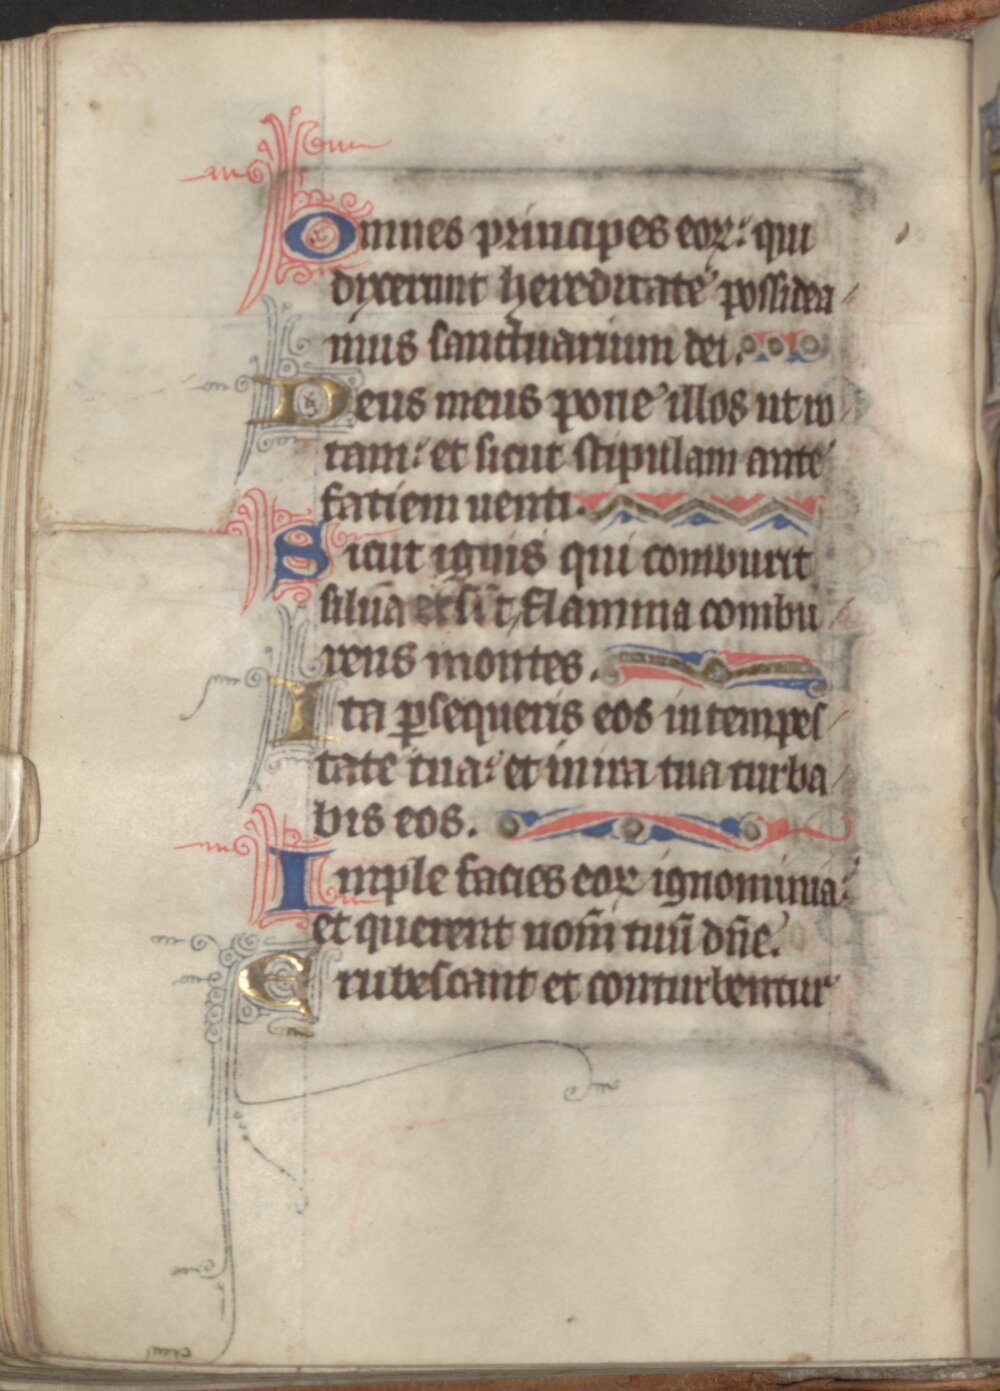 Omnes principes eoꝝ: qui
dixerunt hereditatē possidea/
mus sanctuarium dei.
Deus meus pone illos ut ro/
tam: et sicut stipulam ante
faciem uenti.
Sicut ignis qui comburit
siluā flamma combu/
rens montes.
Ita ꝑsequeris eos in tempes/
tate tua: et in ira tua turba/
bis eos.
Imple facies eoꝝ ignominia:
et querent nom̄ tuū dn̄e.
Erubescant et conturbentur